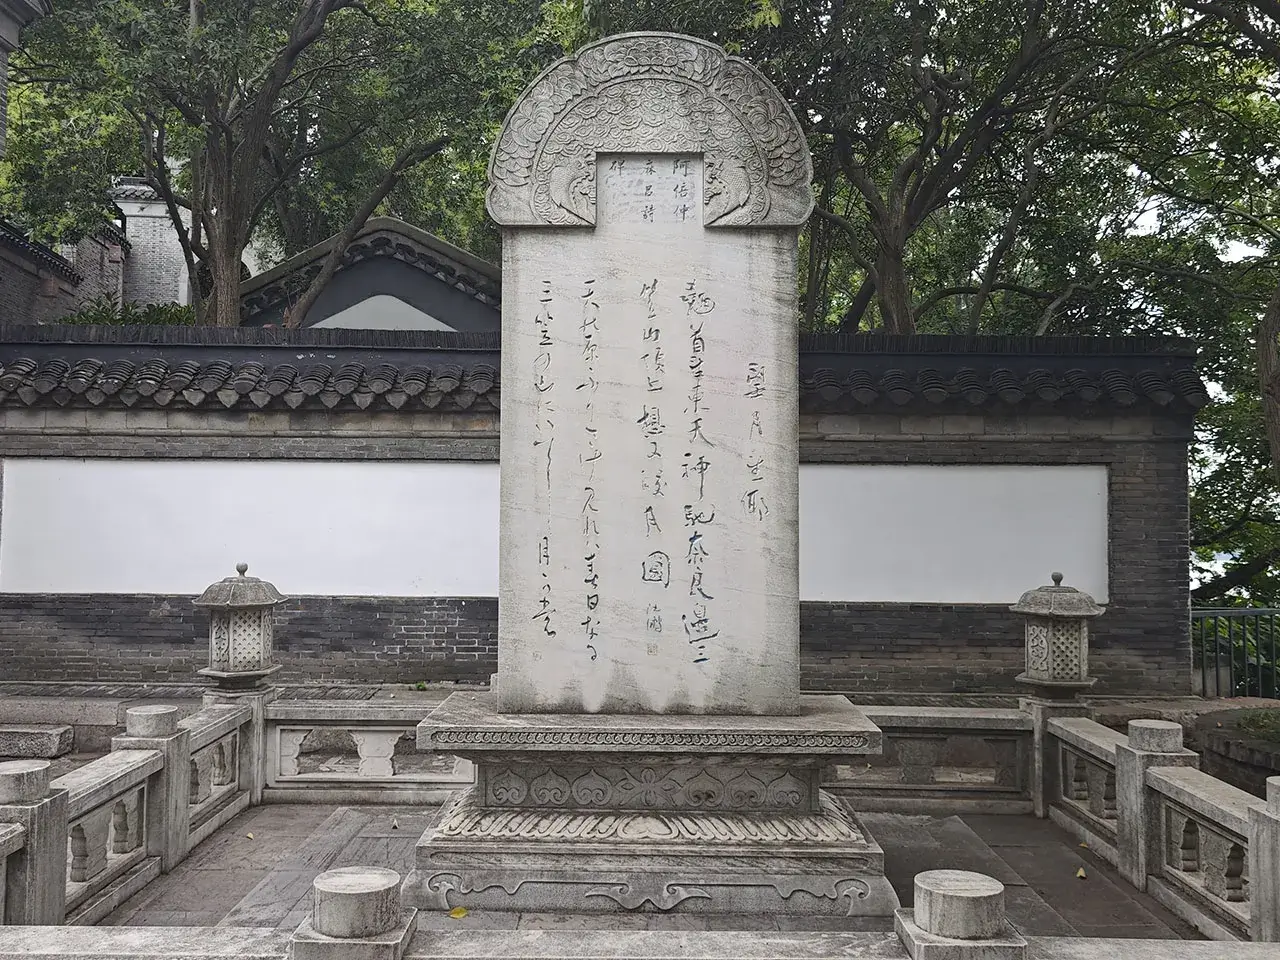 阿倍仲
麻呂詩
碑
望月望鄉
翹首望東天神馳奈良邊三
笠山頂上想又皎月圓 沈鵬
天の原ふりさけ見れハ春日なる
三笠の山にいてし月